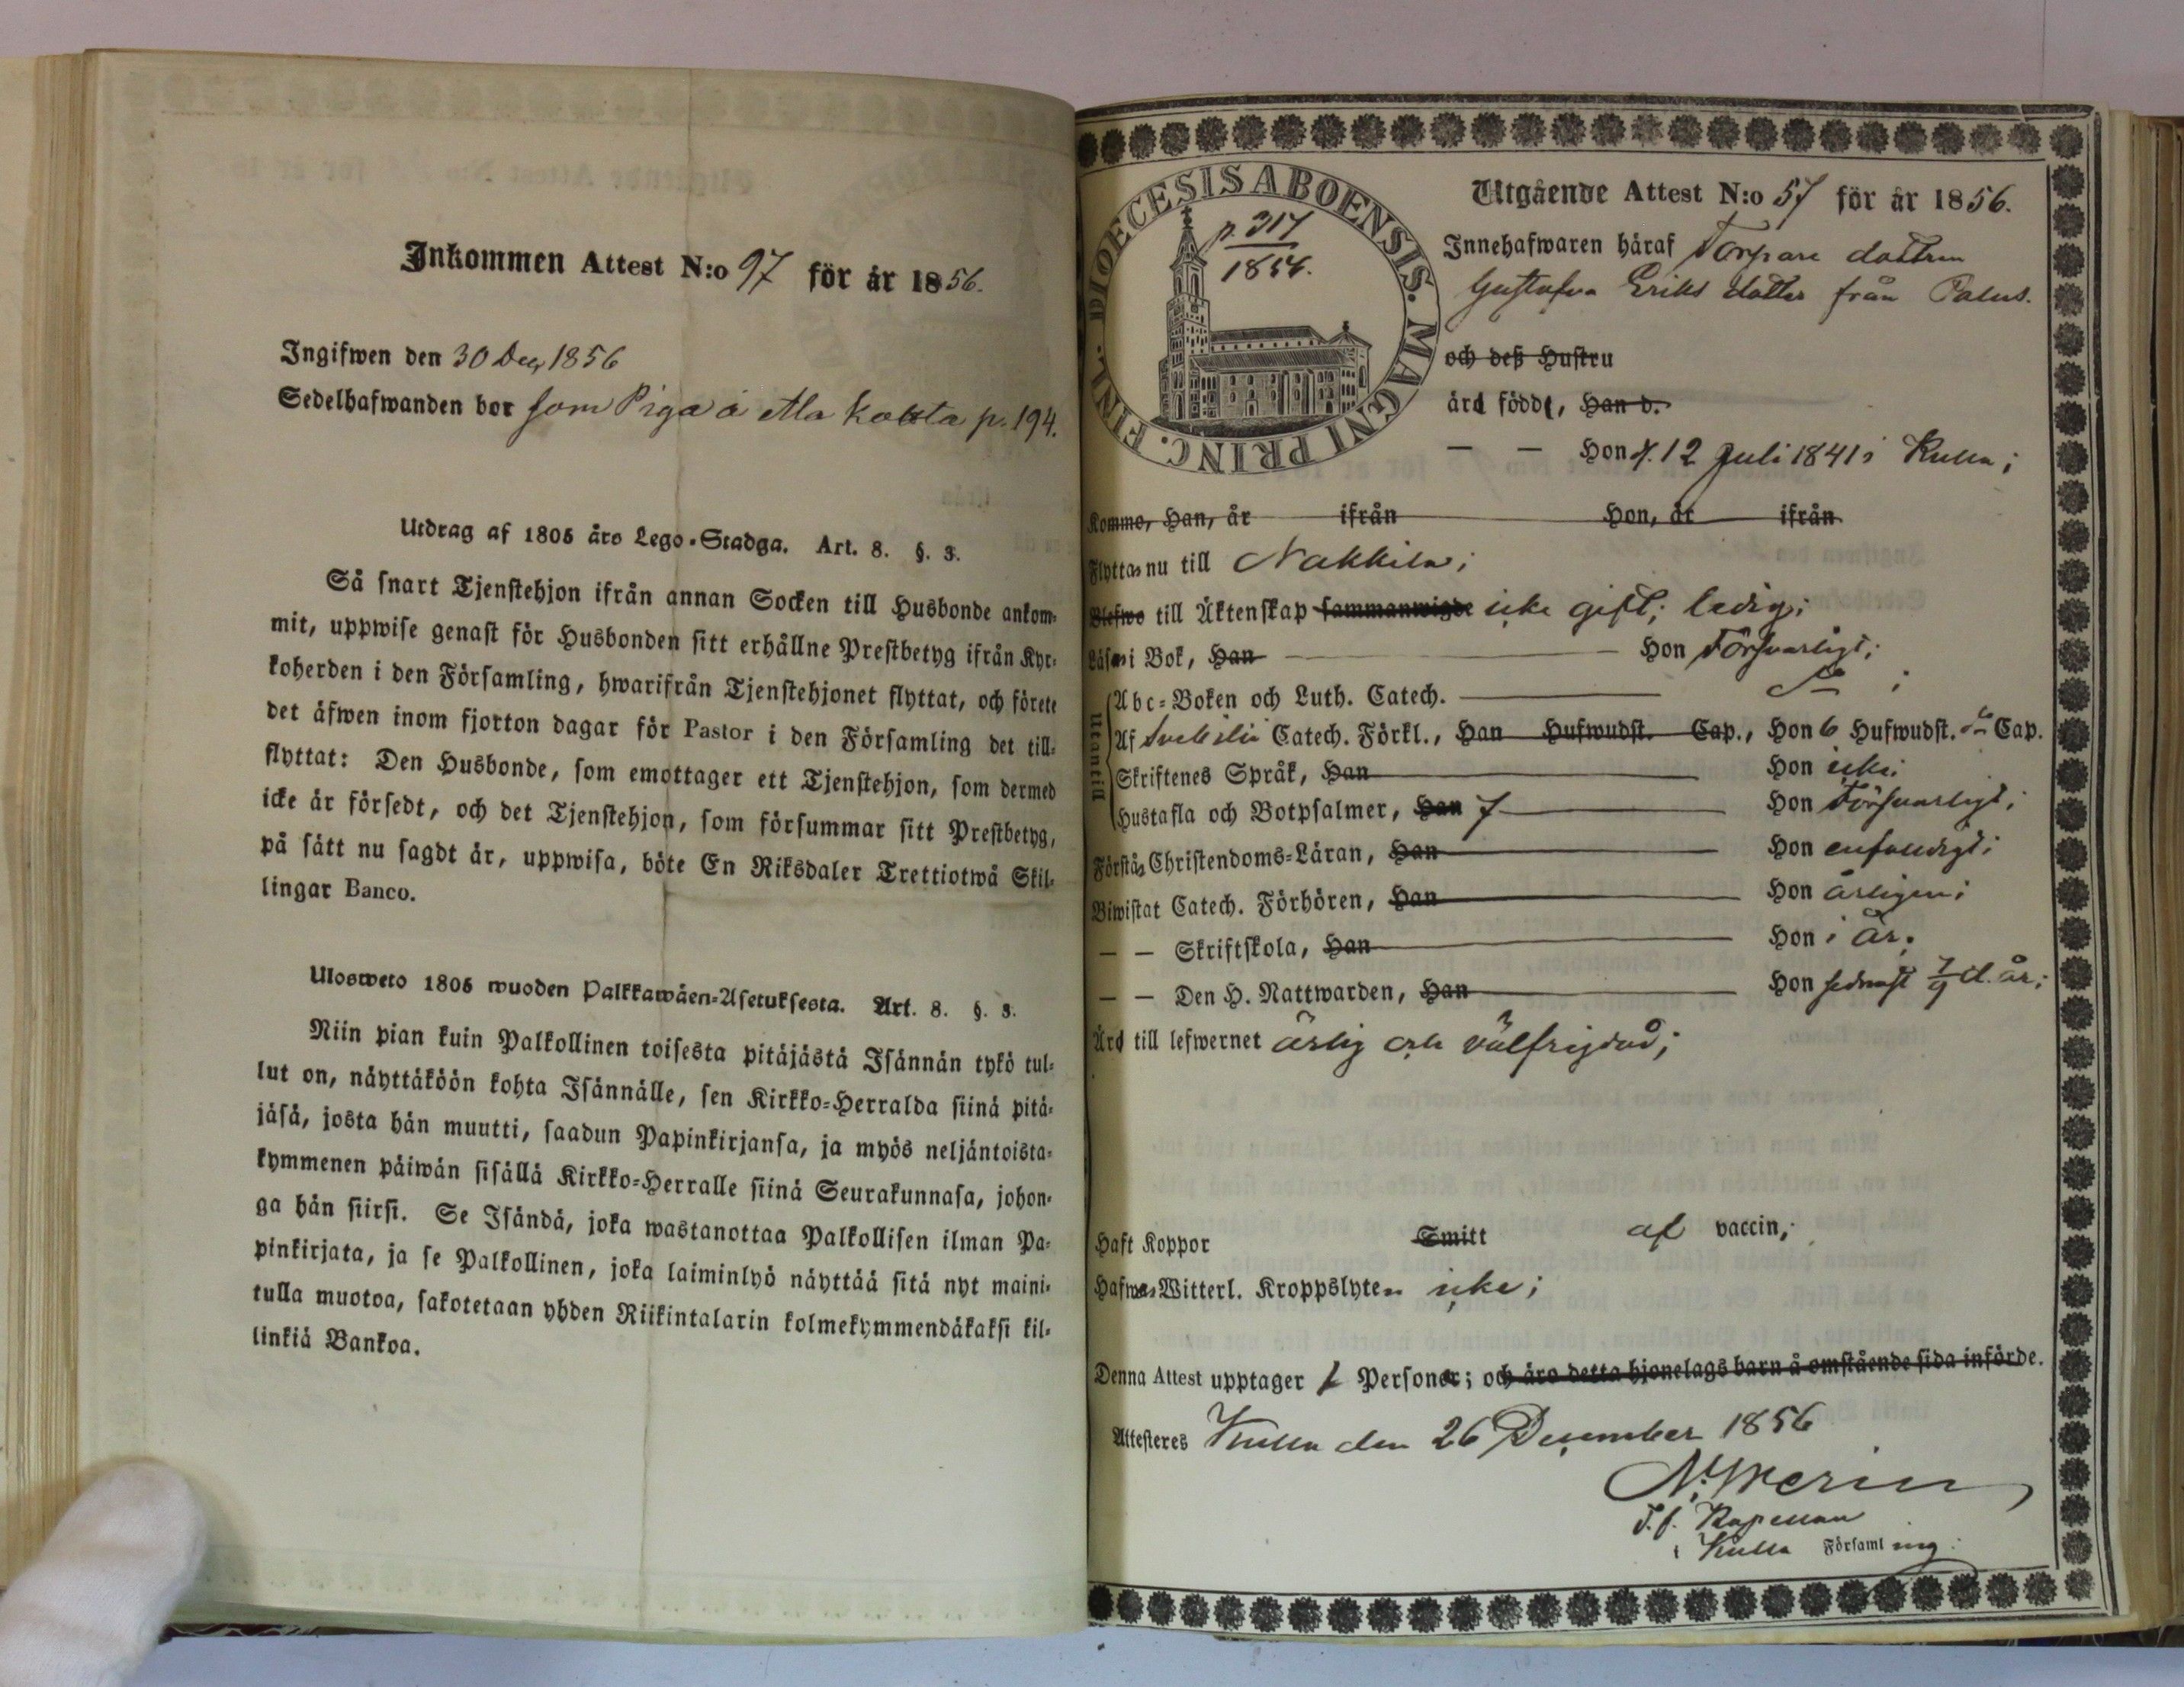 Inkommen Attest N:o 97 för år 1856.
Ingifwen den 30 Dec 1856
Sedelhafwanden bor som Piga å Ala kokta p. 194.
Utdrag af 1805 års Lego-Stadga. Art. 8. §. 3.
Så snart Tjenstehjon ifrån annan Socken till Husbonde ankom-
mit, uppwise genast för Husbonden sitt erhållne Prestbetyg ifrån Kyr-
koherden i den Församling, hwarifrån Tjenstehjonet flyttat, och förete
det äfwen inom fjorton dagar för Pastor i den Församling det till-
flyttat: Den Husbonde, som emottager ett Tjenstehjon, som dermed
icke är försedt, och det Tjenstehjon, som försummar sitt Prestbetyg,
på sätt nu sagdt är, uppwisa, böte En Riksdaler Trettiotwå Skil-
lingar Banco.
Ulosweto 1805 wuoden Palkkawäen-Asetuksesta. Art. 8. §. 3.
Niin pian kuin Palkollinen toisesta pitäjästä Isännän tykö tul-
lut on, näyttäköön kohta Isännälle, sen Kirkko-Herralda siinä pitä-
jäsä, josta hän muutti, saadun Papinkirjansa, ja myös neljäntoista-
kymmenen päiwän sisällä Kirkko-Herralle siinä Seurakunnasa, johon-
ga hän siirsi. Se Isändä, joka wastanottaa Palkollisen ilman Pa-
pinkirjata, ja se Palkollinen, joka laiminlyö näyttää sitä nyt maini-
tulla muotoa, sakotetaan yhden Riikintalarin kolmekymmendäkaksi kil-
linkiä Bankoa.
DIOECESIS ABOENSIS. MAGNI PRINC. FINL.
p. 317
1854.
Utgående Attest N:o 57 för år 1856.
Innehafwaren häraf Torpare dottren
Gustafva Eriks dotter från Palus.
och deß Hustru
ärd född, Han d.
— — Hon d. 12 Juli 1841 i Kulla;
Komne, Han, år ifrån Hon, år ifrån
Flyttas nu till Nakkila;
Blefwo till Äktenskap sammanwigde icke gift; ledig;
Läser i Bok, Han Hon Försvarligt;
Utantill
Abc-Boken och Luth. Catech.
Af Svebilii Catech. Förkl., Han Hufwudst. Cap., Hon 6 Hufwudst. Cap.
Skriftenes Språk, Han Hon icke;
Hustafla och Botpsalmer, Han 7 Hon Försvarligt;
Förstår Christendoms-Läran, Han Hon enfaldigt;
Biwistat Catech. Förhören, Han Hon årligen;
— — Skriftskola, Han Hon i år;
— — Den H. Nattwarden, Han Hon sednast 7/9 d. år;
Ärd till lefwernet ärlig och välfrejdad;
Haft Koppor Smitt af vaccin;
Hafwer Witterl. Kroppslyten icke;
Denna Attest upptager 1 Personer; och äro detta hjonelags barn å omstående sida införde.
Attesteres Kulla den 26 December 1856
T. f. Kapellan
i Kulla Församling.